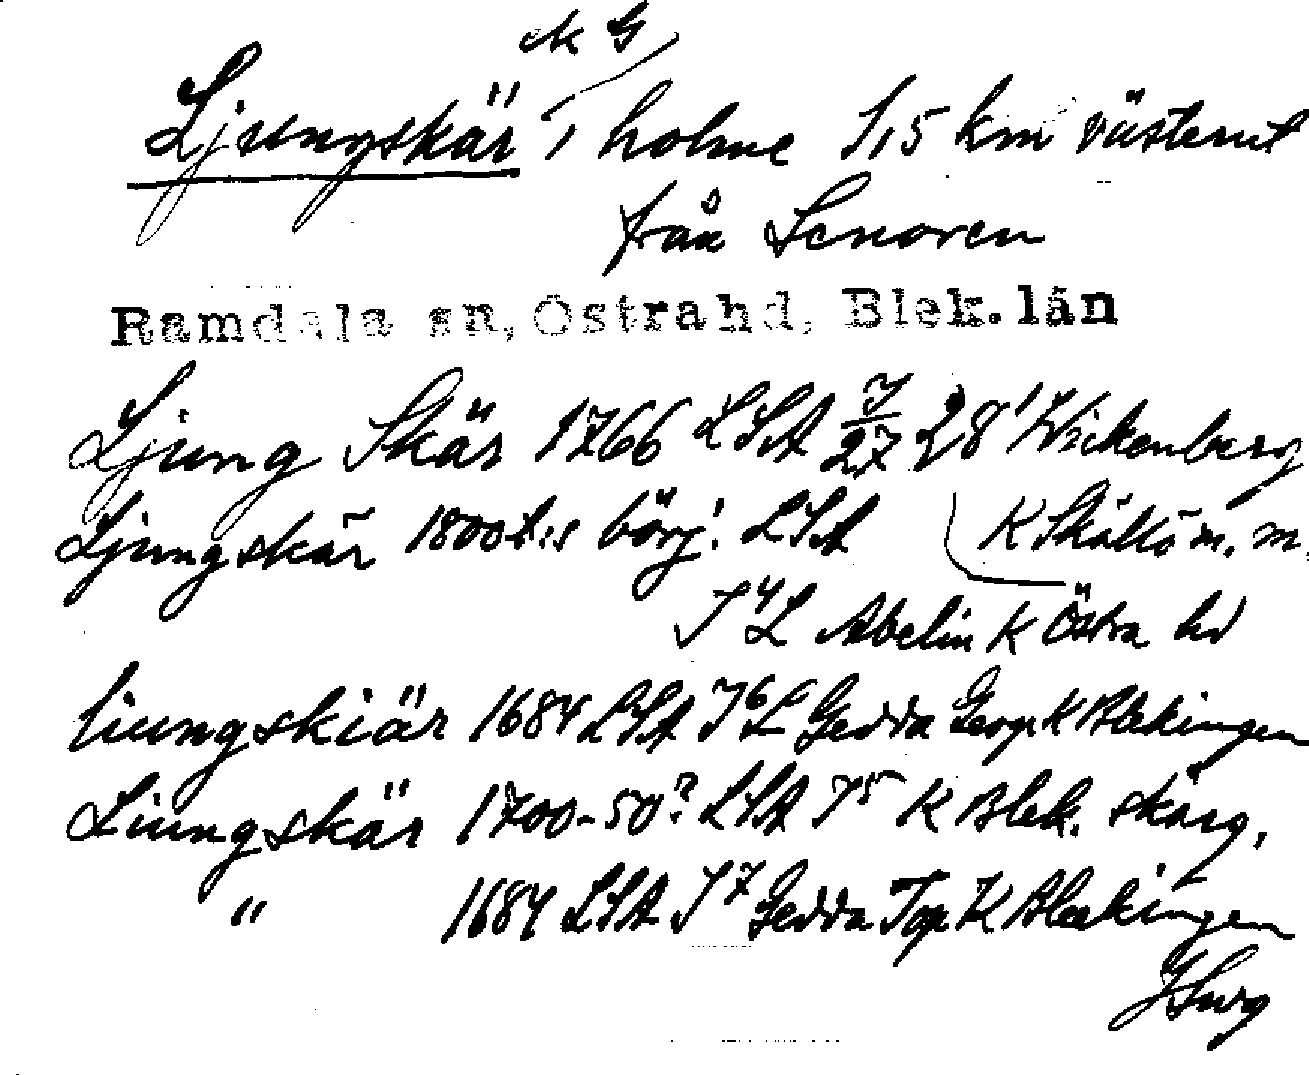 ek G
Ljungskär, holme 1,5 km västerut
från Senoren
Ramdala sn, Östra hd, Blek. län
Ljung Skär 1766 LSA 7/27 28 Wickenberg
Ljungskär 1800 t:s börj. LSA K Skällö m. m.
I 4 L Abelin K Östra hd
liungskiär 1684 LSA I 6 L Gedda Geogr K Blekingen
Liungskär 1700-50? LSA I 5 K Blek. skärg.
" 1684 LSA I 7 Gedda Top K Bleekingen